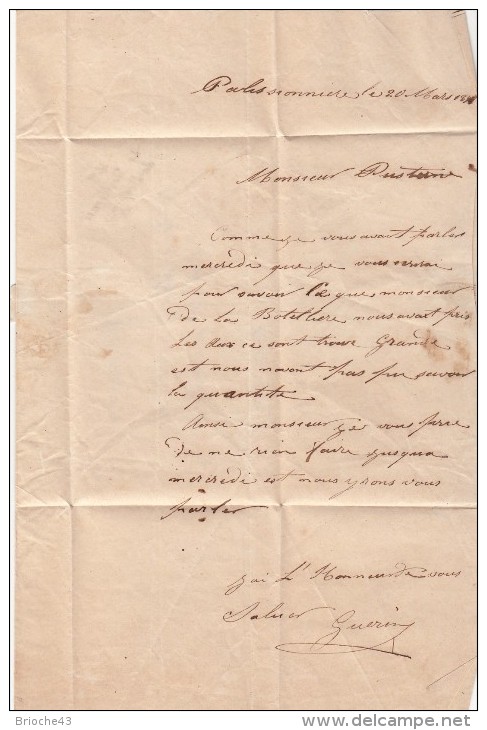 Palissonniere le 20 Mars
Monsieur
Comme ge vous avait parler
mercredi que ge vous
pour savoir ce que monsieur
de la Botelliere nous avait pris
Les deux ce sont trouve Grande
est nous navont pas pu savoir
la quantite
Ainsi monsieur ge vous prie
de ne rien faire gusqua
mercredi est nous yrons vous
parler
gai L'Honneur de vous
Saluer Guerin
Brioche43
www.delcampe.net